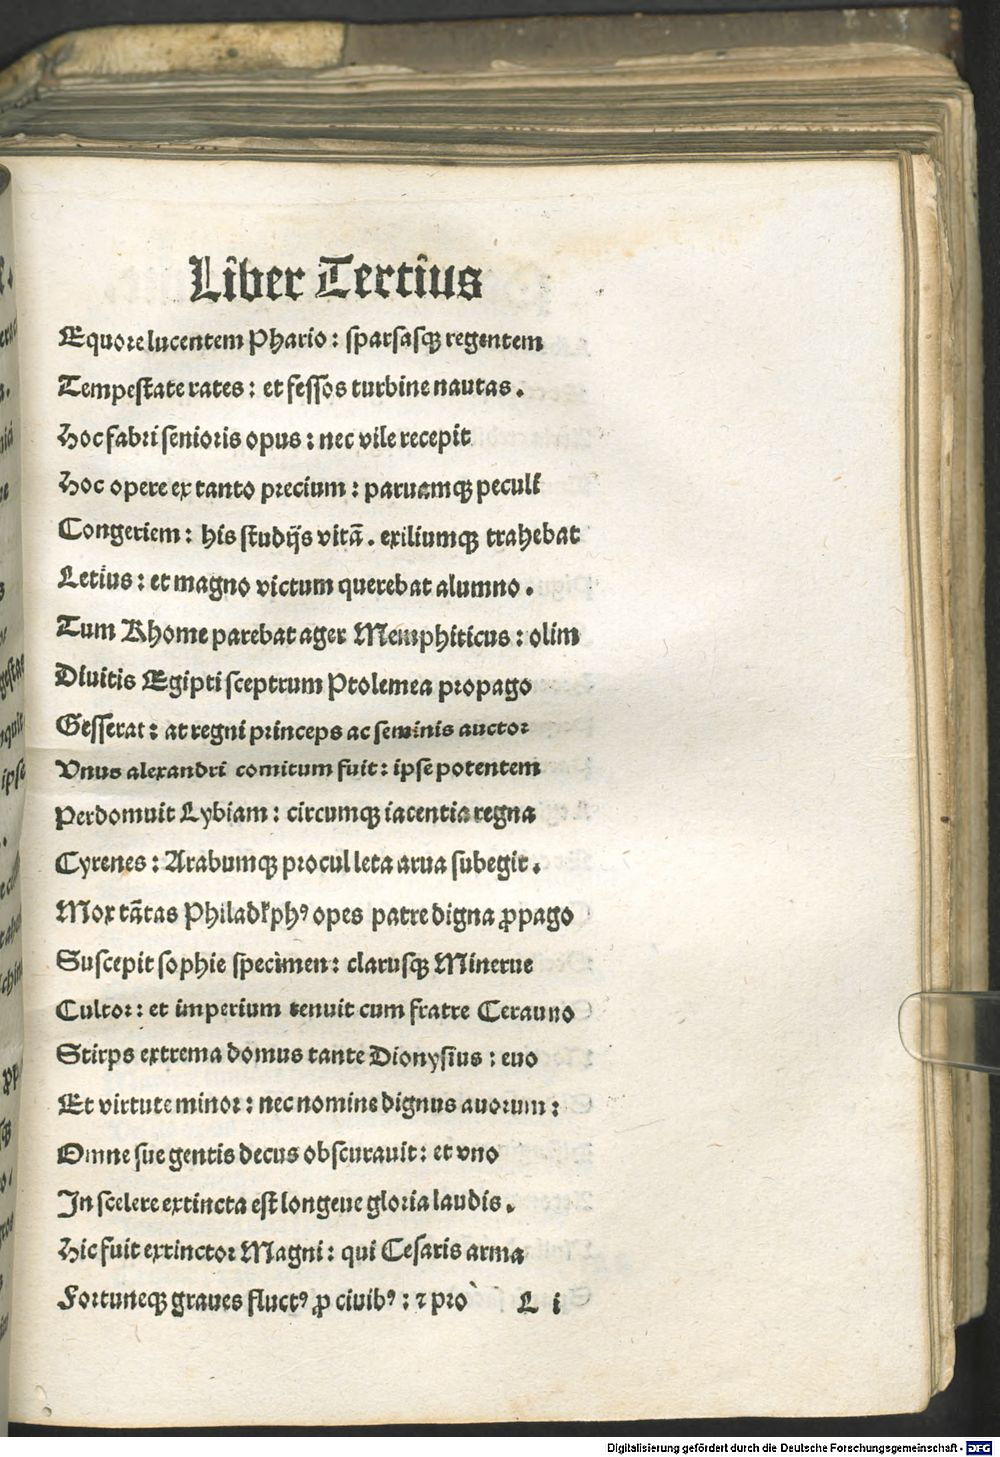 Liber Tertius
Equore lucentem Phario : sparsasqꝫ regentem
Tempestate rates : et fessos turbine nautas .
Hoc fabri senioris opus : nec vile recepit
Hoc opere ex tanto precium : paruamqꝫ peculi
Congeriem : his studijs vitã . exiliumqꝫ trahebat
Letius : et magno victum querebat alumno .
Tum Rhome parebat ager Memphiticus : olim
Diuitis Egipti sceptrum Ptolemea propago
Gesserat : at regni princeps ac seminis auctor
Vnus alexandri comitum fuit : ipse potentem
Perdomuit Lybiam : circumqꝫ iacentia regna
Cyrenes : Arabumqꝫ procul leta arua subegit .
Mox tãtas Philadlphꝰ opes patre digna ꝓpago
Suscepit sophie specimen : clarusqꝫ Minerue
Cultor : et imperium tenuit cum fratre Cerauno
Stirps extrema domus tante Dionysius : euo
Et virtute minor : nec nomine dignus auorum :
Omne sue gentis decus obscurauit : et vno
In scelere extincta est longeue gloria laudis .
Hic fuit extinctor Magni : qui Cesaris arma
Fortuneqꝫ graues fluctꝰ ꝓ ciuibꝰ : ⁊ pro L i
Digitalisierung gefördert durch die Deutsche Forschungsgemeinschaft - DFG